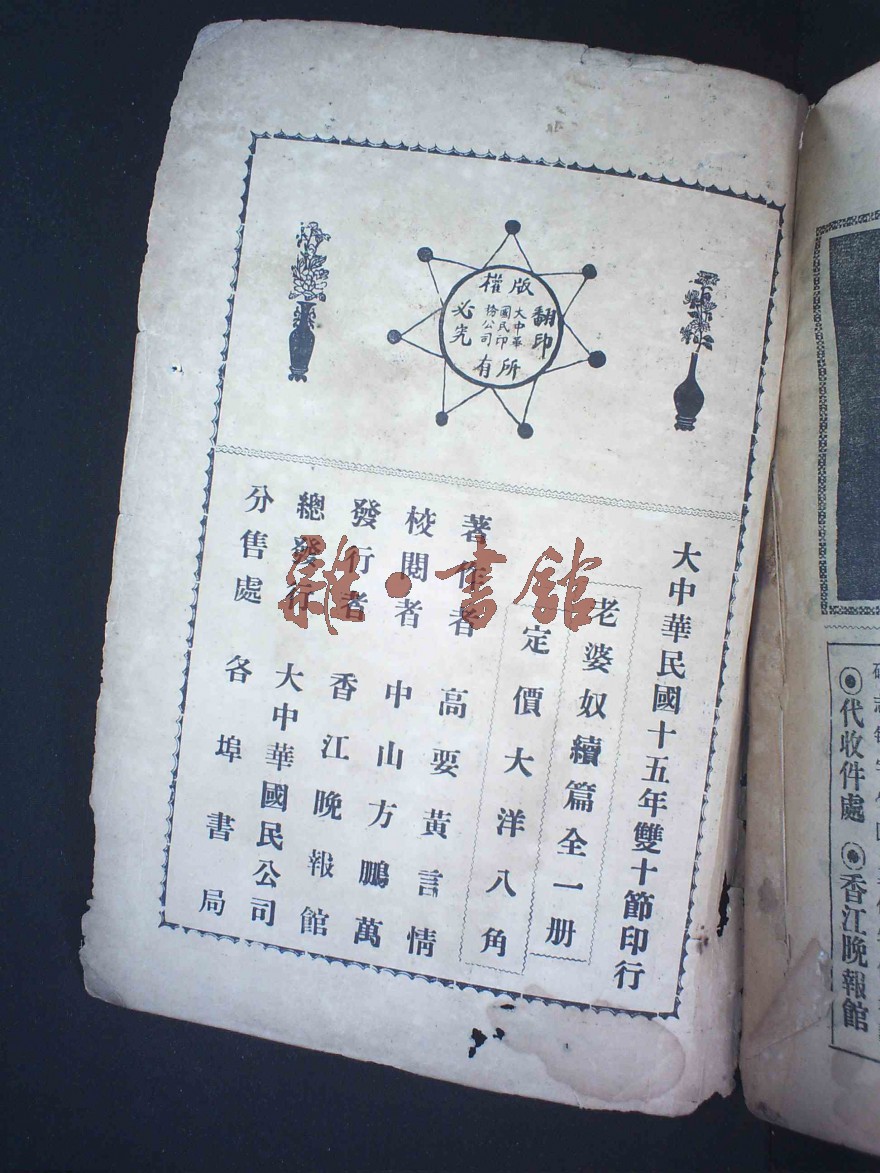 版權
所有
翻印
必究
大中華
國民印
務公司
大中華民國十五年雙十節印行
老婆奴續篇全一册
定價大洋八角
著作者 高要黃言情
校閱者 中山方鵬萬
發行者 香江晚報館
總發行 大中華國民公司
分售處 各埠書局
雜·書館
◉代收件處 ◉香江晚報館